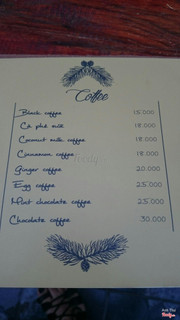 Coffee
Black coffee 15.000
Cà phê milk 18.000
Coconut milk coffee 18.000
Cinnamon coffee 18.000
Ginger coffee 20.000
Egg coffee 25.000
Mint chocolate coffee 25.000
Chocolate coffee 30.000